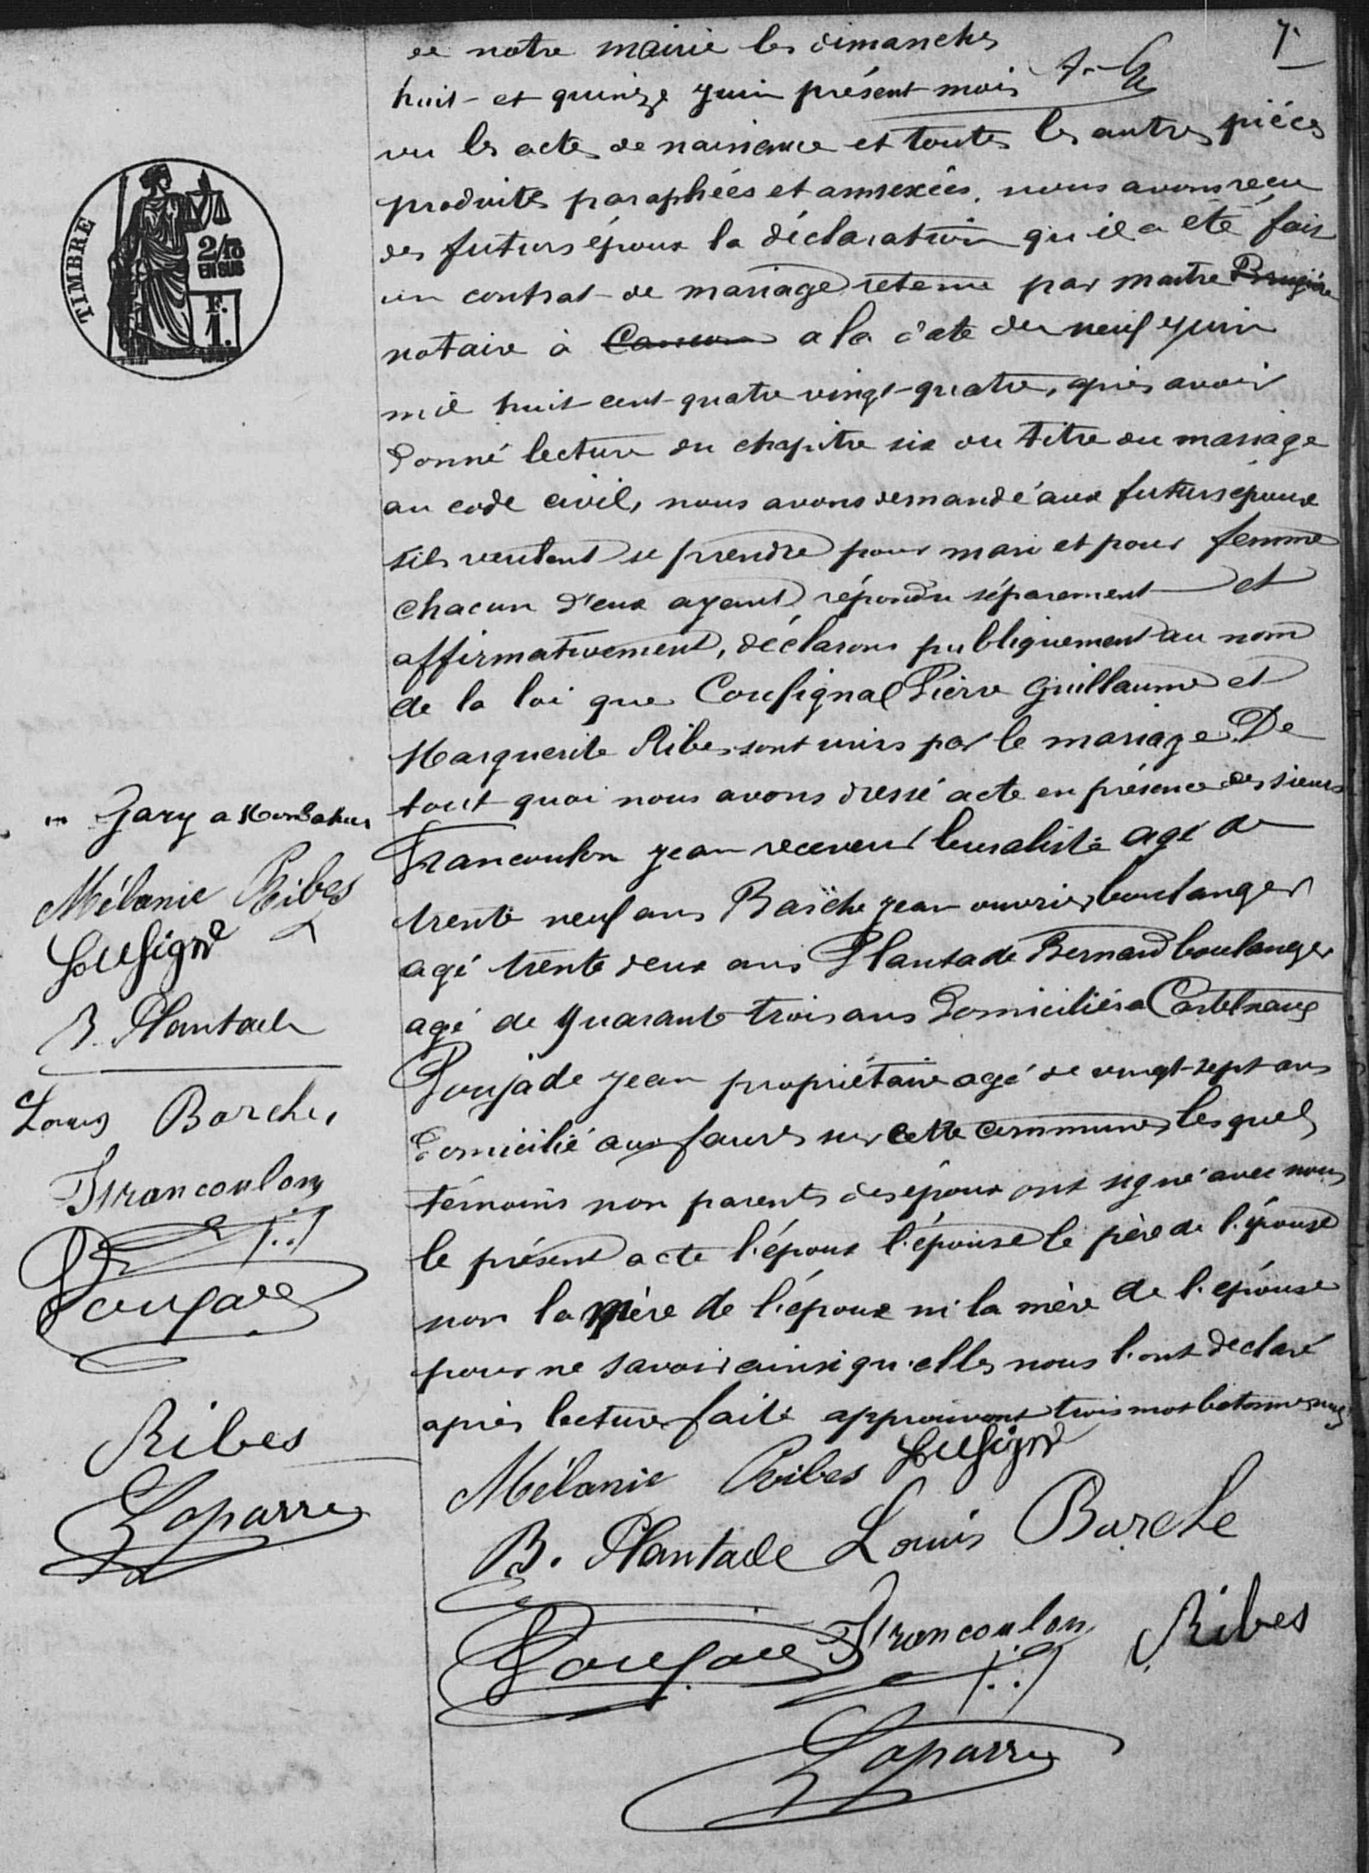 7.
de notre mairie les dimanches
huit et quinze juin présent mois
vu les actes de naissance et toutes les autres pièces
produites paraphées et annexées, nous avons reçu
des futurs époux la déclaration qu'il a été fait
un contrat de mariage retenu par maitre Brugière
notaire à a la date du neuf juin
mil huit cent quatre vingt-quatre, après avoir
donné lecture du chapitre six du titre du mariage
au code civil, nous avons demandé aux futurs époux
s'ils veulent se prendre pour mari et pour femme
chacun d'eux ayant répondu séparement et
affirmativement, déclarons publiquement au nom
de la loi que Cousignal Pierre Guillaume et
Marguerite Ribes sont unis par le mariage De
tout quoi nous avons dressé acte en présence des sieurs
Francoulon jean receveur buraliste agé de
trente neuf ans Barche jean ouvrier boulanger
agé trente deux ans Plantade Bernard boulanger
agé de quarante trois ans Domiciliés a Castelnau
Poujade jean propriétaire agé de vingt-sept ans
Domicilié aux faures sur cette commune, lesquels
témoins non parents des époux ont signé avec nous
le présent acte l'époux l'épouse le père de l'épouse
non la mère de l'époux ni la mère de l'épouse
pour ne savoir ainsi qu'elles nous l'ont déclaré
après lecture faite approuvant trois mots batonnés nuls
Mélanie Ribes Cousignal
B. Plantade Louis Barche
Poujade Francoulon Ribes
Laparre
TIMBRE
2/10
EN SUS
F.
1.
Gary a
Mélanie Ribes
Cousignal
B. Plantade
Louis Barche,
Francoulon
Poujade
Ribes
Laparre